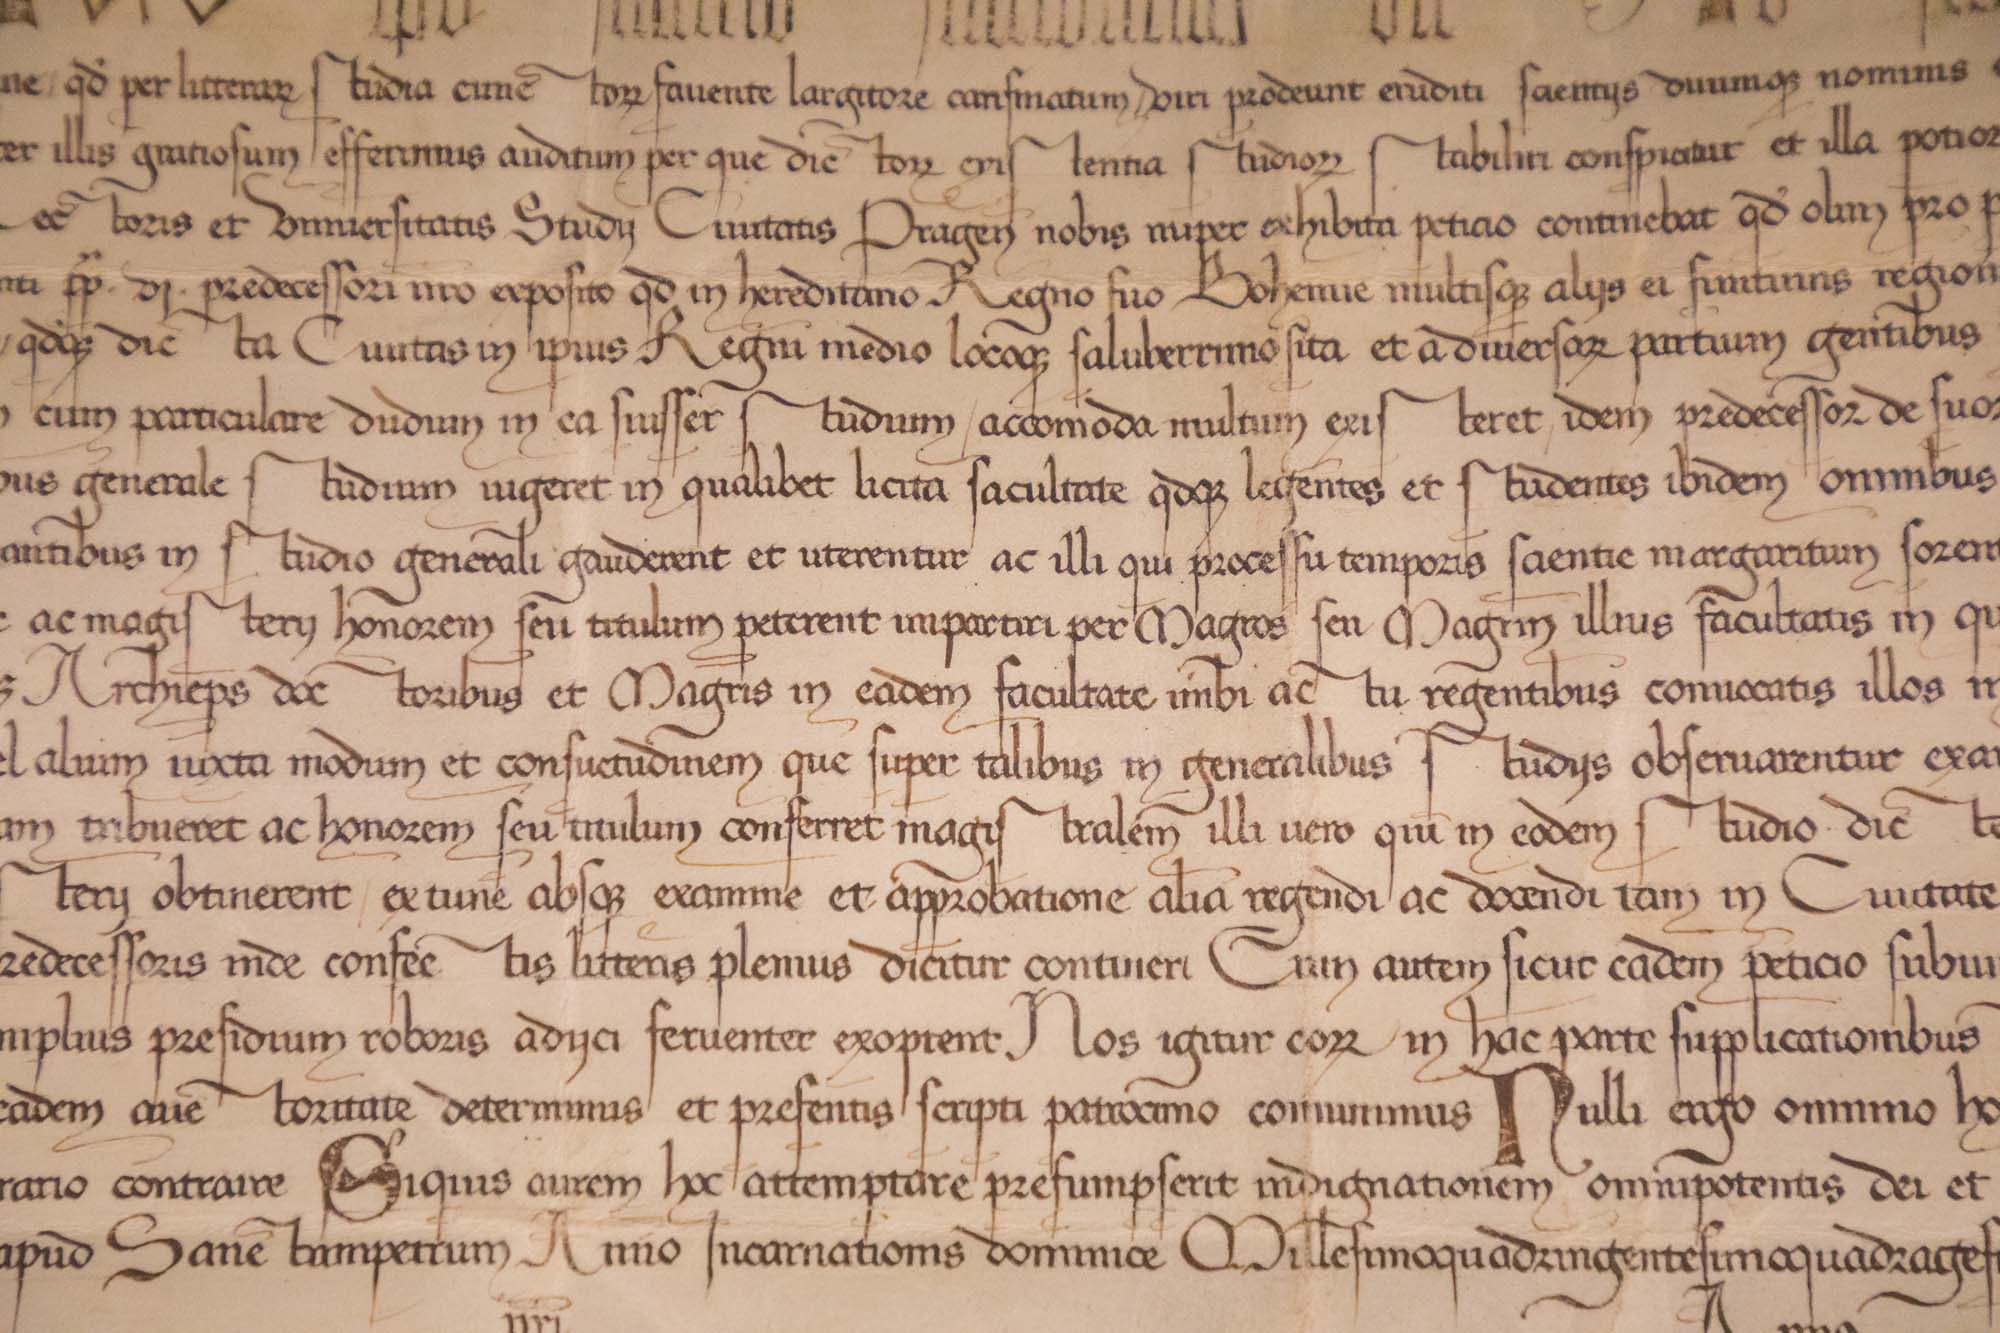 qd per litterar studia cunctorr favente largitore carismatum viri prodeunt eruditi scientijs divumq nominis
illis gratiosum efferimus auditum per que dictorr existentia studiorr stabiliri conspiciatur et illa potior
ectoris et Universitatis Studij Civitatis Pragen nobis nuper exhibita peticio continebat qd olim pro
pp. vj. predecessori nro exposito qd in hereditario Regno suo Bohemie multisq alijs ei finitimis region
qdq dicta Civitas in ipius Regni medio locoq saluberrimo sita et a diversar partium gentibus
cum particulare dudum in ea fuisset studium / accomoda multum existeret / idem predecessor de suor
bus generale studium vigeret in qualibet licita facultate qdq legentes et studentes ibidem omnibus
antibus in studio generali gauderent et uterentur ac illi qui processu temporis scientie margaritum
ac magisterij honorem seu titulum peterent impartiri per Magros seu Magrm illius facultatis in qu
Archieps doctoribus et Magris in eadem facultate inibi actu regentibus convocatis illos
el alium iuxta modum et consuetudinem que super talibus in generalibus studijs observarentur exa
am tribueret ac honorem seu titulum conferret magistralem illi vero qui in eodem studio dicte
sterij obtinerent / ex tunc absq examine et approbatione alia regendi ac docendi tam in Civitate
redecessoris inde confectis litteris plenius dicitur contineri Cum autem sicut eadem peticio subiu
mplius presidium roboris adijci ferventer exoptent Nos igitur eorr in hac parte supplicationibus
eadem auctoritate determinus et presentis scripti patrocinio comunimus Nulli ergo omnino ho
rario contraire Siquis autem hoc attemptare presumpserit indignationem omnipotentis dei et
apud Sanctumpetrum Anno Incarnationis dominice Millesimoquadringentesimoquadragesi